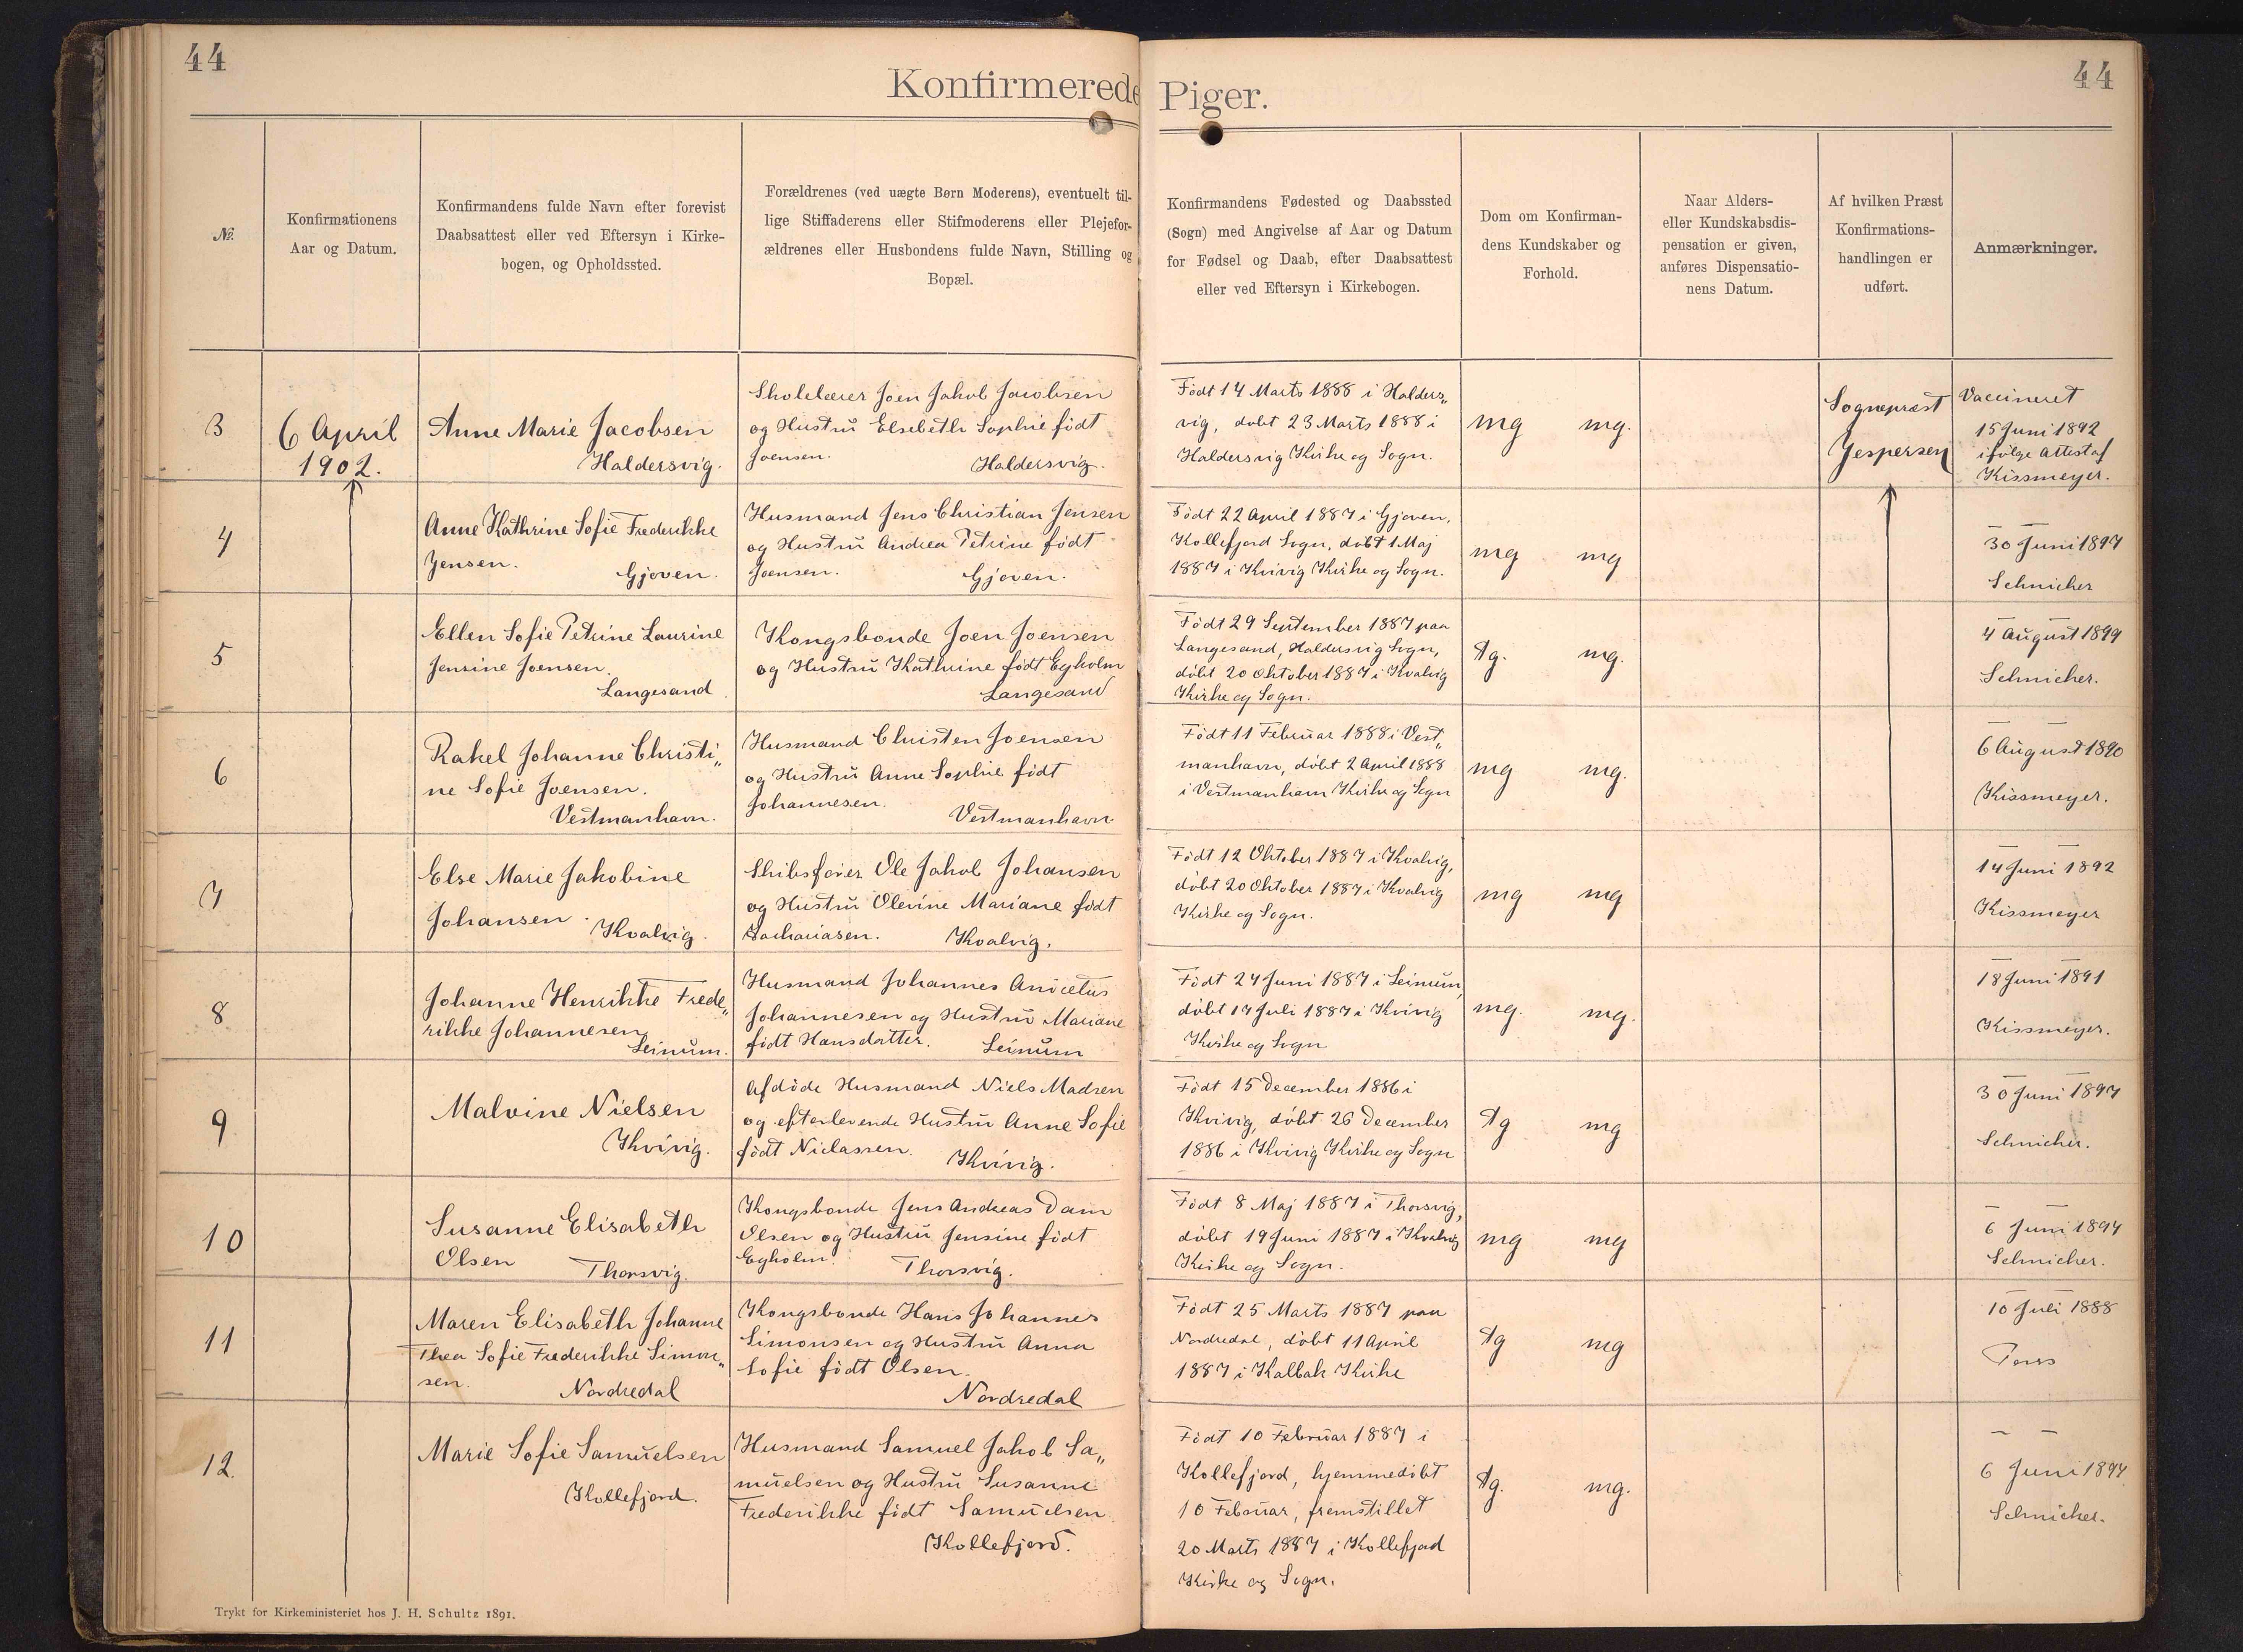 44
44
Konfirmerede Piger.
№.
Konfirmationens
Aar og Datum.
Konfirmandens fulde Navn efter forevist
Daabsattest eller ved Eftersyn i Kirke-
bogen, og Opholdssted.
Forældrenes (ved uægte Børn Moderens), eventuelt til-
lige Stiffaderens eller Stifmoderens eller Plejefor-
ældrenes eller Husbondens fulde Navn, Stilling og
Bopæl.
Konfirmandens Fødested og Daabssted
(Sogn) med Angivelse af Aar og Datum
for Fødsel og Daab, efter Daabsattest
eller ved Eftersyn i Kirkebogen.
Dom om Konfirman-
dens Kundskaber og
Forhold.
Naar Alders-
eller Kundskabsdis-
pensation er given,
anføres Dispensatio-
nens Datum.
Af hvilken Præst
Konfirmations-
handlingen er
udført.
Anmærkninger.
3
6 April
1902.
Anne Marie Jacobsen
Haldersvig.
Skolelærer Joen Jakob Jacobsen
og Hustru Elsebeth Sophie født
Joensen.
Haldersvig.
Født 14 Marts 1888 i Halders„
vig, døbt 23 Marts 1888 i
Haldersvig Kirke og Sogn.
mg mg.
Sognepræst
Jespersen
Vaccineret
15 Juni 1892
ifølge Attest af
Kissmeyer.
4
Anne Kathrine Sofie Frederikke
Jensen.
Gjoven.
Husmand Jens Christian Jensen
og Hustru Andrea Petrine født
Joensen.
Gjoven.
Født 22 April 1887 i Gjoven,
Kollefjord Sogn, døbt 1 Maj
1887 i Kvivig Kirke og Sogn.
mg mg
30 Juni 1897
Schnicker
5
Ellen Sofie Petrine Laurine
Jensine Joensen.
Langesand.
Kongsbonde Joen Joensen
og Hustru Kathrine født Egholm
Langesand
Født 29 September 1887 paa
Langesand, Haldersvig Sogn,
døbt 20 Oktober 1887 i Kvalvig
Kirke og Sogn.
tg. mg.
4 August 1899
Schnicker.
6
Rakel Johanne Christi„
ne Sofie Joensen.
Vestmanhavn.
Husmand Christen Joensen
og Hustru Anne Sophie født
Johannesen.
Vestmanhavn.
Født 11 Februar 1888 i Vest„
manhavn, døbt 2 April 1888
i Vestmanhavn Kirke og Sogn
mg mg.
6 August 1890
Kissmeyer.
7
Else Marie Jakobine
Johansen.
Kvalvig.
Skibsfører Ole Jakob Johansen
og Hustru Olevine Mariane født
Zachariasen.
Kvalvig.
Født 12 Oktober 1887 i Kvalvig,
døbt 20 Oktober 1887 i Kvalvig
Kirke og Sogn.
mg mg
14 Juni 1892
Kissmeyer
8
Johanne Henrikke Frede„
rikke Johannesen
Leinum.
Husmand Johannes Anicetus
Johannesen og Hustru Mariane
født Hansdatter.
Leinum
Født 24 Juni 1887 i Leinum,
døbt 17 Juli 1887 i Kvivig
Kirke og Sogn
mg. mg.
18 Juni 1891
Kissmeyer.
9
Malvine Nielsen
Kvivig.
Afdøde Husmand Niels Madsen
og efterlevende Hustru Anne Sofie
født Niclassen.
Kvivig.
Født 15 December 1886 i
Kvivig, døbt 26 December
1886 i Kvivig Kirke og Sogn
tg mg
30 Juni 1897
Schnicker.
10
Susanne Elisabeth
Olsen
Thorsvig.
Kongsbonde Jens Andreas Dam
Olsen og Hustru Jensine født
Egholm.
Thorsvig.
Født 8 Maj 1887 i Thorsvig,
døbt 19 Juni 1887 i Kvalvig
Kirke og Sogn.
mg mg
6 Juni 1894
Schnicker.
11
Maren Elisabeth Johanne
Thea Sofie Frederikke Simon„
sen.
Nordredal
Kongsbonde Hans Johannes
Simonsen og Hustru Anna
Sofie født Olsen.
Nordredal
Født 25 Marts 1887 paa
Nordredal, døbt 11 April
1887 i Kalbak Kirke
tg mg
10 Juli 1888
12.
Marie Sofie Samuelsen
Kollefjord.
Husmand Samuel Jakob Sa„
muelsen og Hustru Susanne
Frederikke født Samuelsen.
Kollefjord.
Født 10 Februar 1887 i
Kollefjord, hjemmedøbt
10 Februar, fremstillet
20 Marts 1887 i Kollefjord
Kirke og Sogn.
tg. mg.
6 Juni 1894
Schnicker.
Trykt for Kirkeministeriet hos J. H. Schultz 1891.